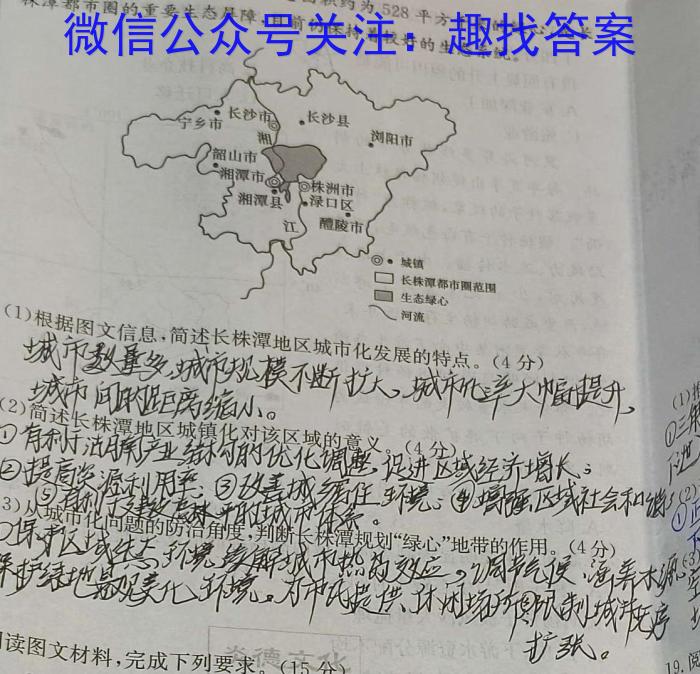 积约为528平方
株潭都市圈的重要生态屏障,目前仍保持着较好的生态系统。
微信公众号关注:趣找答案
长沙市
长沙县
宁乡市
湘
浏阳市
韶山市
湘潭市
株洲市
湘潭县
渌口区
江
醴陵市
城镇
长株潭都市圈范围
生态绿心
河流
(1)根据图文信息,简述长株潭地区城市化发展的特点。(4分)
城市数量多,城市规模不断扩大,城市化率大幅提升,
城市间距离缩小。
(2)简述长株潭地区城镇化对该区域的意义。(4分)
①有利于 产业结构的优化调整,促进区域经济增长;
②提高资源利用率 ③改善城 居住环境;④增强区域社会和谐
⑤有利于 的城市体系。
3)从城市化问题的防治角度,判断长株潭规划“绿心”地带的作用。(4分)
保护区域生态环境,缓解城市热岛效应。调节气候,涵养水源
保护绿地景观美化环境。为市民提供休闲场所 限制城市无序
扩张。
炎德文化
阅读图文材料,完成下列要求。(15分)
19.阅